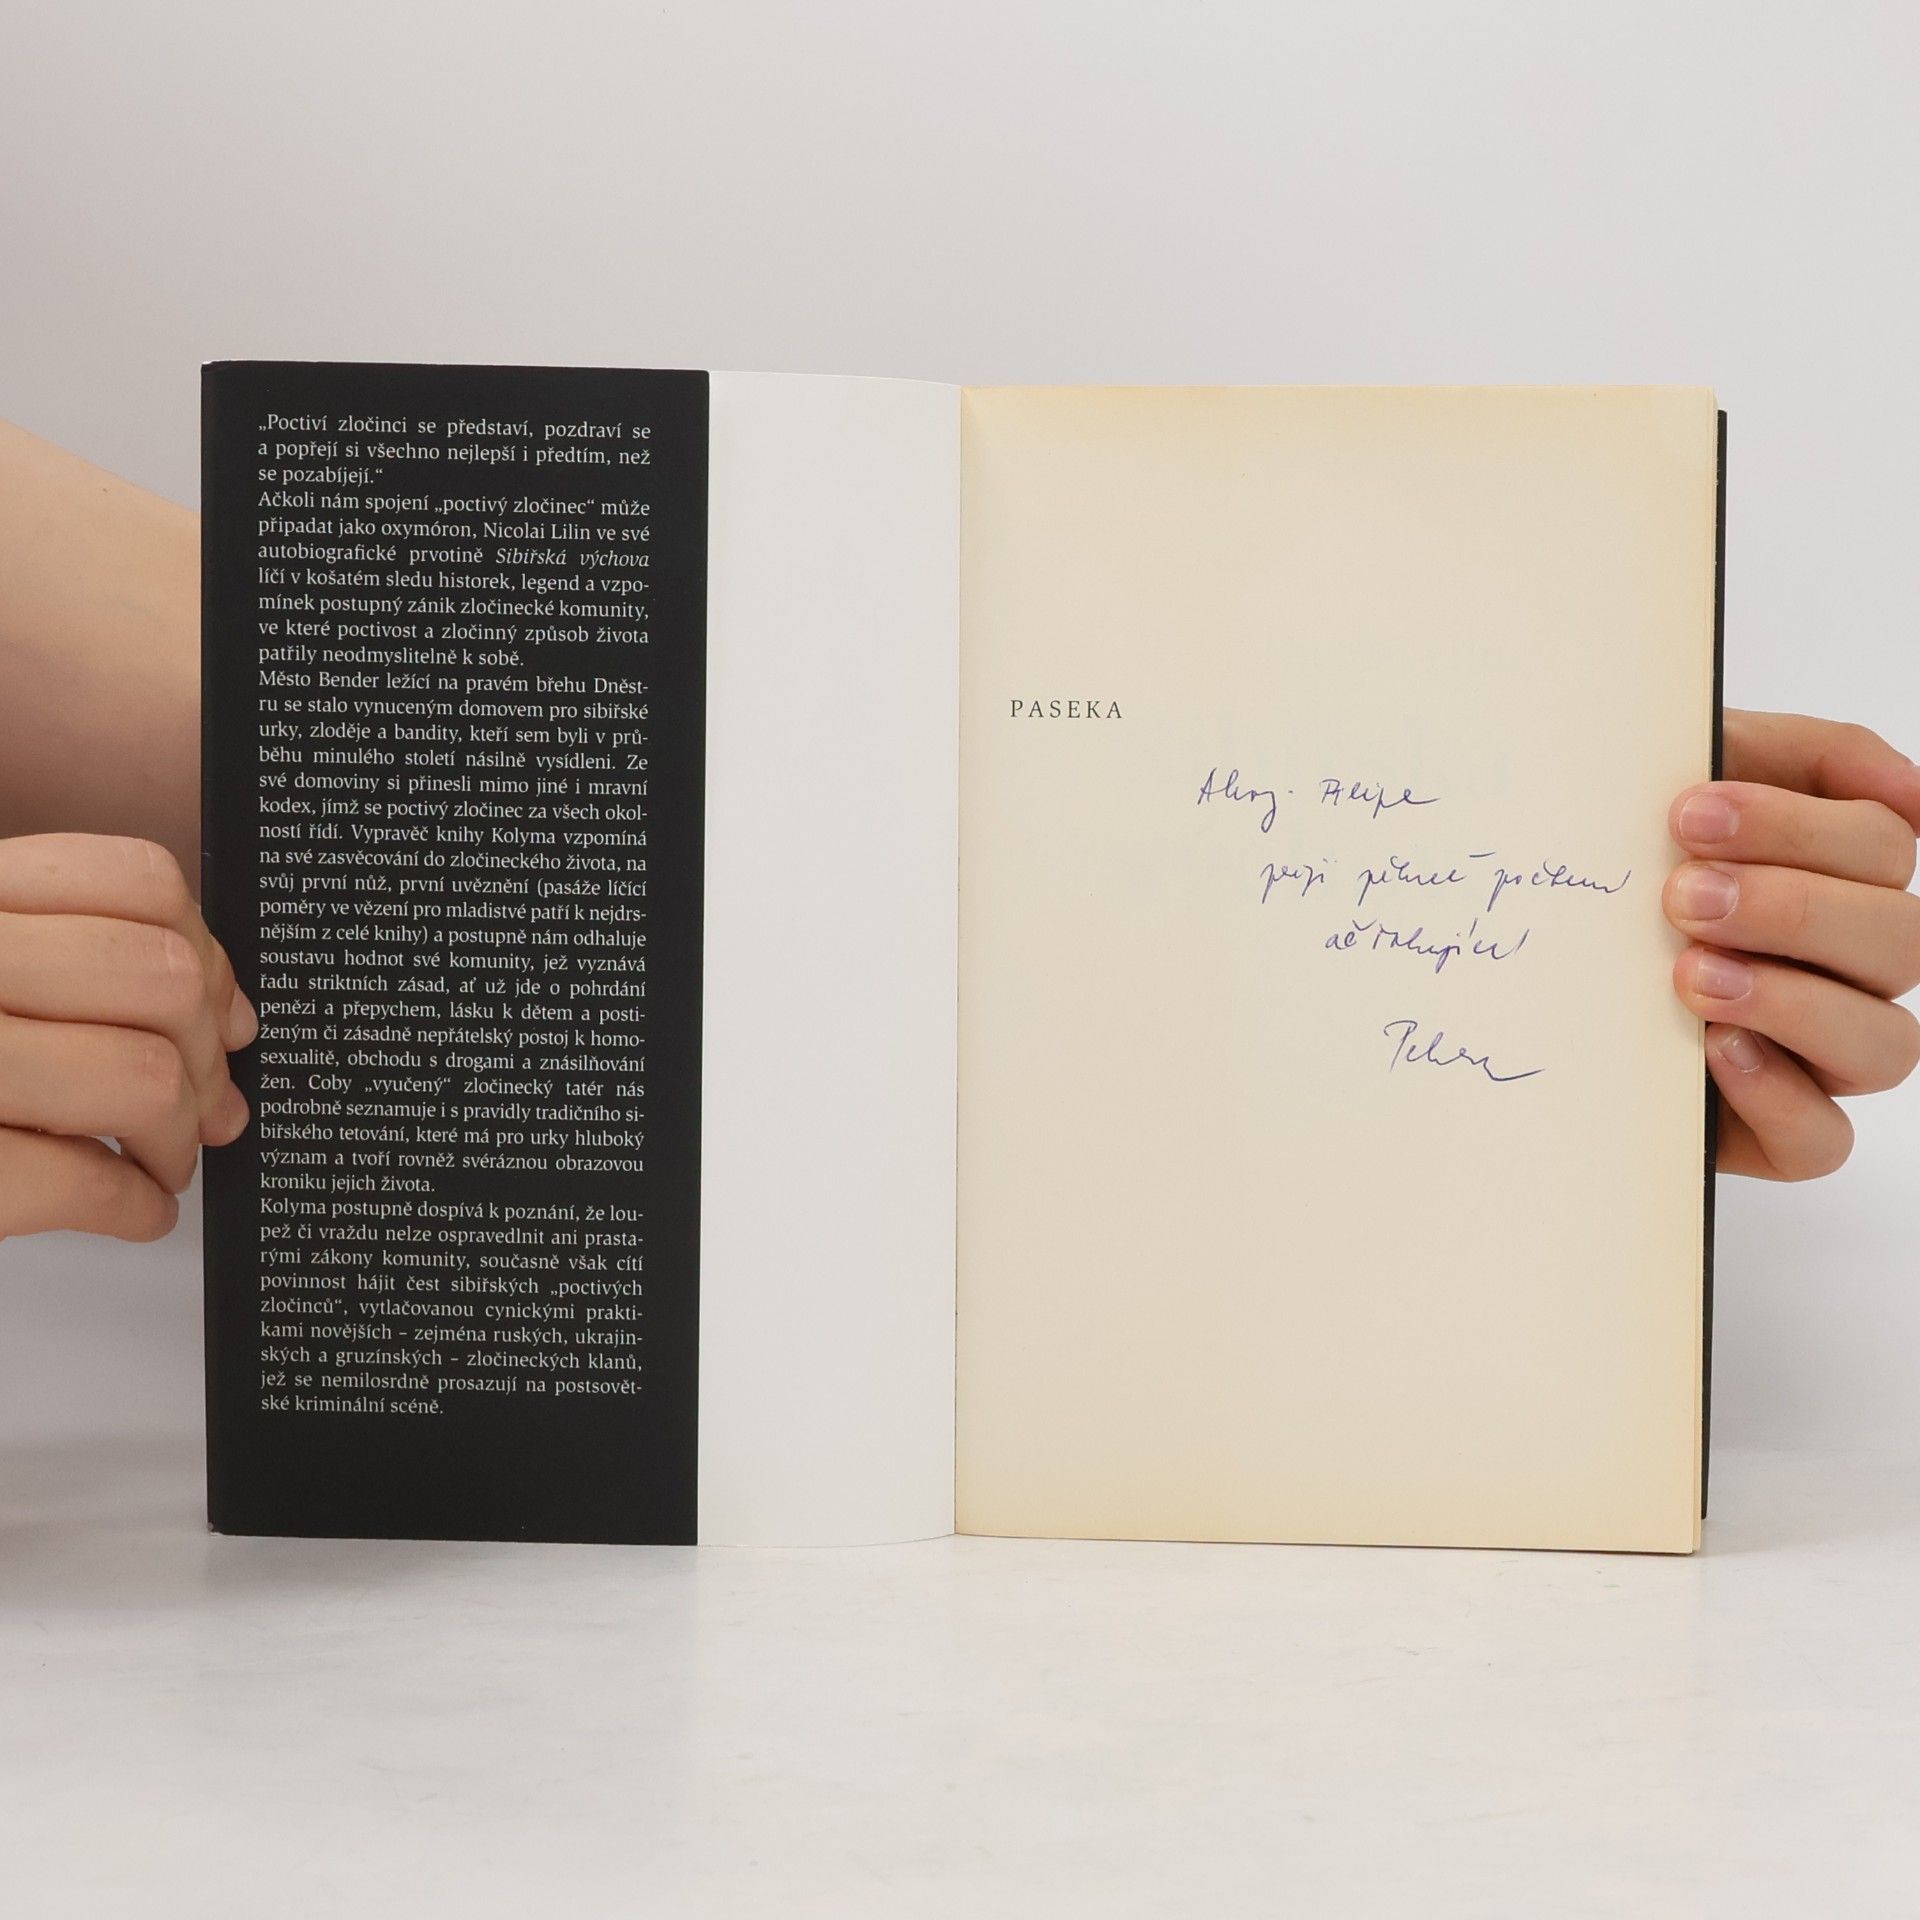 „Poctiví zločinci se představí, pozdraví se
a popřejí si všechno nejlepší i předtím, než
se pozabíjejí.“
Ačkoli nám spojení „poctivý zločinec“ může
připadat jako oxymóron, Nicolai Lilin ve své
autobiografické prvotině Sibiřská výchova
líčí v košatém sledu historek, legend a vzpo-
mínek postupný zánik zločinecké komunity,
ve které poctivost a zločinný způsob života
patřily neodmyslitelně k sobě.
Město Bender ležící na pravém břehu Dněst-
ru se stalo vynuceným domovem pro sibiřské
urky, zloděje a bandity, kteří sem byli v prů-
běhu minulého století násilně vysídleni. Ze
své domoviny si přinesli mimo jiné i mravní
kodex, jímž se poctivý zločinec za všech okol-
ností řídí. Vypravěč knihy Kolyma vzpomíná
na své zasvěcování do zločineckého života, na
svůj první nůž, první uvěznění (pasáže líčící
poměry ve vězení pro mladistvé patří k nejdrs-
nějším z celé knihy) a postupně nám odhaluje
soustavu hodnot své komunity, jež vyznává
řadu striktních zásad, ať už jde o pohrdání
penězi a přepychem, lásku k dětem a posti-
ženým či zásadně nepřátelský postoj k homo-
sexualitě, obchodu s drogami a znásilňování
žen. Coby „vyučený“ zločinecký tatér nás
podrobně seznamuje i s pravidly tradičního si-
biřského tetování, které má pro urky hluboký
význam a tvoří rovněž svéráznou obrazovou
kroniku jejich života.
Kolyma postupně dospívá k poznání, že lou-
pež či vraždu nelze ospravedlnit ani prasta-
rými zákony komunity, současně však cítí
povinnost hájit čest sibiřských „poctivých
zločinců“, vytlačovanou cynickými prakti-
kami novějších – zejména ruských, ukrajin-
ských a gruzínských – zločineckých klanů,
jež se nemilosrdně prosazují na postsovět-
ské kriminální scéně.
PASEKA
Ahoj Filipe
přeji pěkné počtení
ač